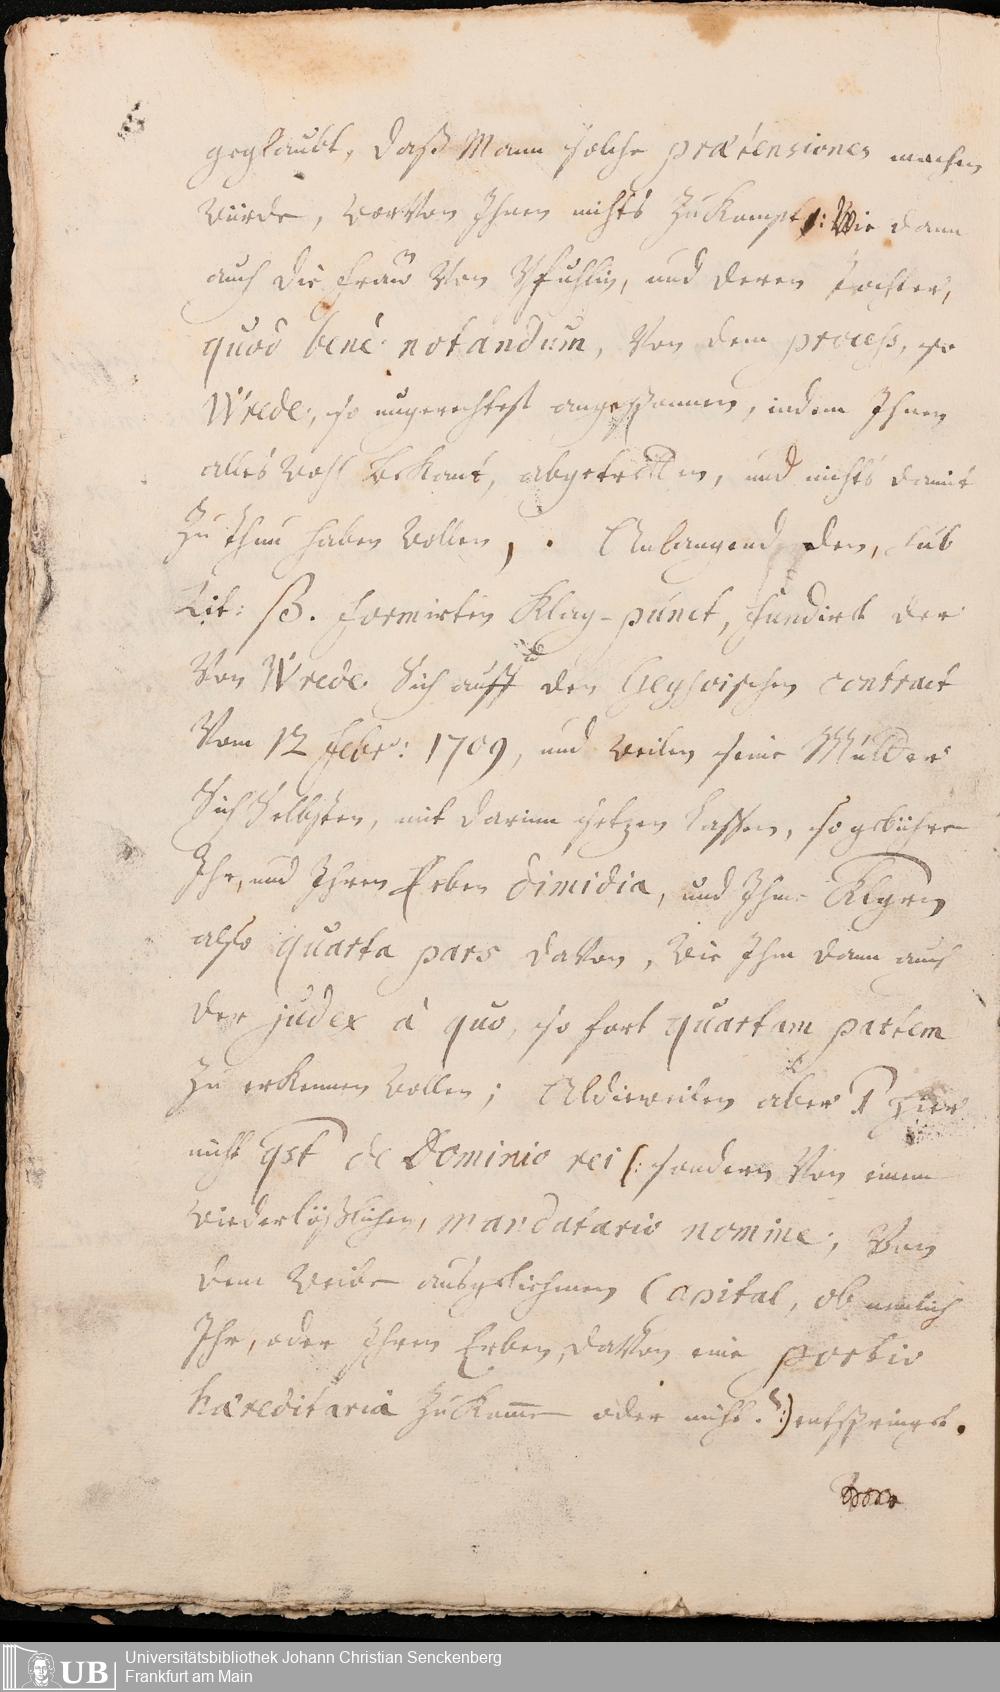 geglaubt, daß Mann solche prætensiones machen
würde, worvon Ihnen nichts Zukompt /: Wie dann
auch die Frau Von Pfuhlin, und deren Tochter,
quod bené notandum, Von dem process, so
Wrede, so ungerechtest angespannen, indem Ihnen
alles wohl bekant, abgetretten, und nichts damit
Zu thun haben wollen, . Anlangend den, sub
Lit: B. formirten Klag-punct, fundirt der
Von Wrede Sich auff den Geysoischen contract
Vom 12 Febr: 1709, und weilen seine Mutter
Sich Selbsten, mit darinn setzen lassen, so gebühre
Ihr, und Ihren Erben dimidia, und Ihme Klägern
also quarta pars davon, wie Ihm dann auch
der judex à quo, so fort quartam partem
Zu erkennen wollen; Aldieweilen aber hier
nicht qst de Dominio rei (: sondern Von einem
wiederlößlichen, mandatario nomine, Von
dem Weibe ausgeliehenen Capital, ob nemlich
Ihr, oder Ihren Erben, davon eine portio
hæreditaria Zukomme oder nicht. :) entspringt.
Universitätsbibliothek Johann Christian Senckenberg
Frankfurt am Main
UB